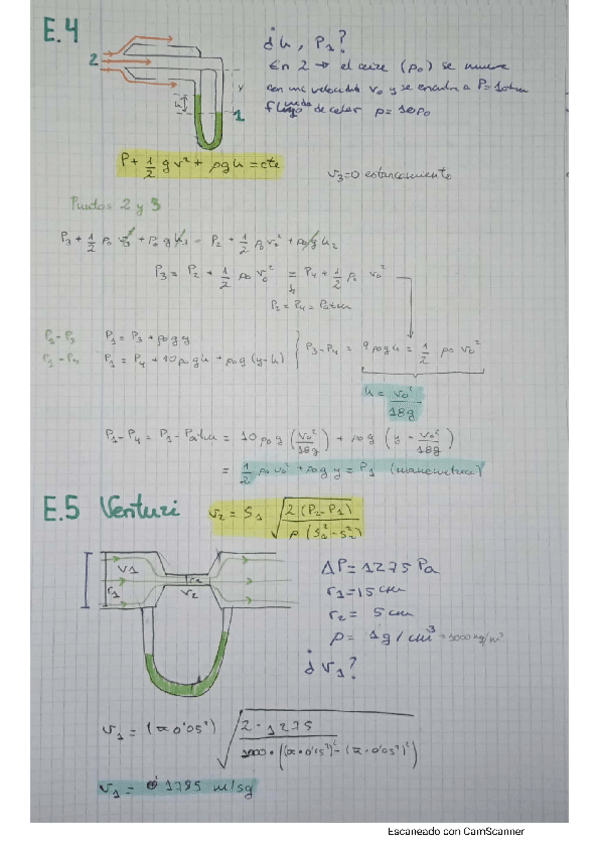 E.4
¿h, P₁?
En 2 → el aire (ρ₀) se mueve
con una velocidad v₀ y se encuentra a P=1atm
ρ=10ρ₀
2
y
h
1
P+ 1/2 ρ v² + ρgh = cte
v₃=0 estancamiento
Puntos 2 y 3
P₃ + 1/2 ρ₀ v₃² + ρ₀ g h₃ = P₂ + 1/2 ρ₀ v₀² + ρ₀ g h₂
P₃ = P₂ + 1/2 ρ₀ v₀² = P₄ + 1/2 ρ₀ v₀²
P₂ = P₄ = Patm
P₁-P₃ P₁ = P₃ + ρ₀ g y
P₁-P₄ P₁ = P₄ + 10ρ₀gh + ρ₀g (y-h)
P₃-P₄ = 9ρ₀gh = 1/2 ρ₀ v₀²
h = v₀²/18g
P₁-P₄ = P₁-Patm = 10ρ₀g (v₀²/18g) + ρ₀g (y - v₀²/18g)
= 1/2 ρ₀v₀² + ρ₀gy = P₁ (manométrica)
E.5 Venturi
v₂ = S₁ √(2(P₂-P₁) / ρ(S₁²-S₂²))
v₁
r₁
r₂
v₂
ΔP = 1275 Pa
r₁ = 15 cm
r₂ = 5 cm
ρ = 1g/cm³ = 1000 kg/m³
¿v₁?
v₁ = (π0'05²) √(2·1275 / 1000·((π·0'15²)² - (π·0'05²)²))
v₁ = 0'1785 m/sg
Escaneado con CamScanner